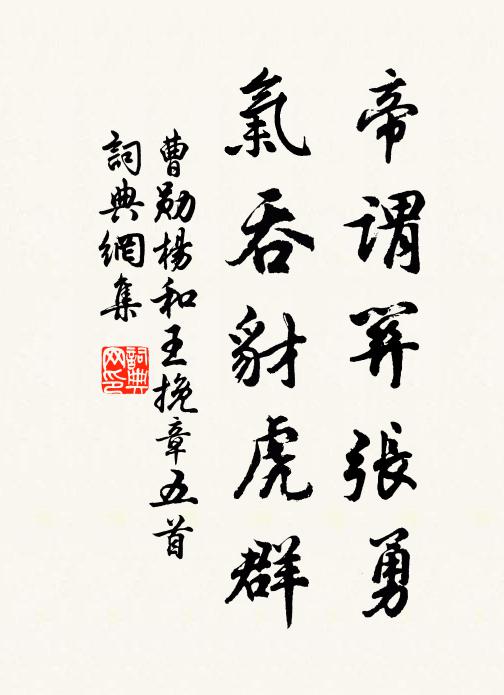 帝謂關張勇
氣吞豺虎群
曹勛楊和王挽章五首
詞典網集
詞典网印